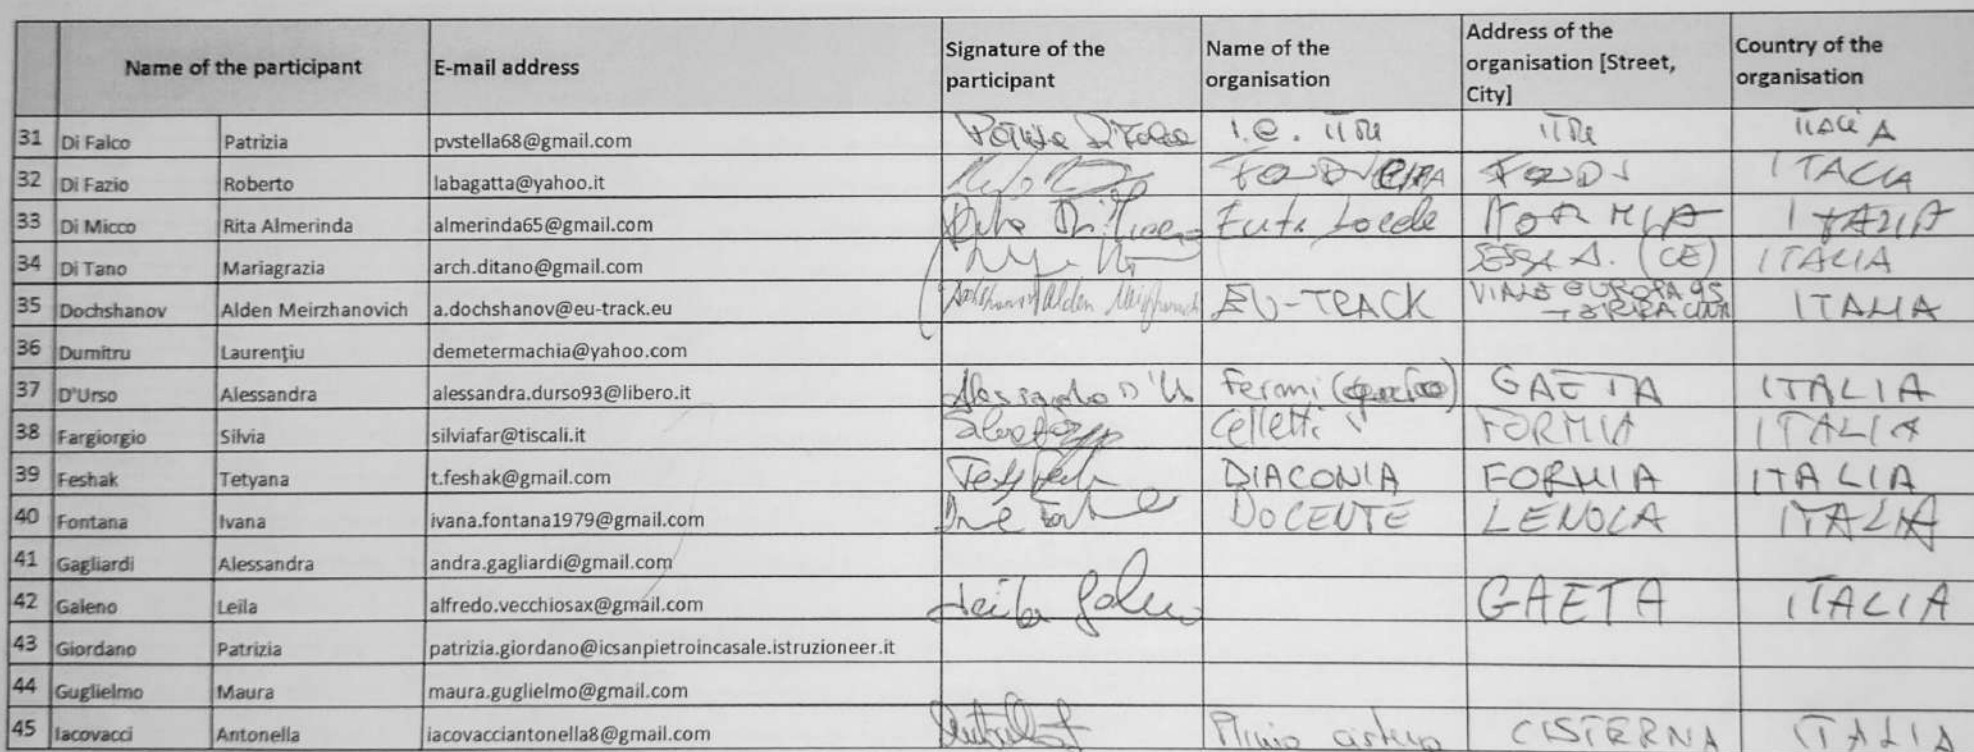 Name of the participant E-mail address Signature of the participant Name of the organisation Address of the organisation [Street, City] Country of the organisation
31 Di Falco Patrizia pvstella68@gmail.com I.C. ITRI ITRI ITALIA
32 Di Fazio Roberto labagatta@yahoo.it FONDI ITALIA
33 Di Micco Rita Almerinda almerinda65@gmail.com Rita Di Micco Ente Locale FORMIA ITALIA
34 Di Tano Mariagrazia arch.ditano@gmail.com SESSA A. (CE) ITALIA
35 Dochshanov Alden Meirzhanovich a.dochshanov@eu-track.eu Dochshanov Alden Meirzhanovich EU-TRACK VIALE EUROPA 95 TERRACINA ITALIA
36 Dumitru Laurenţiu demetermachia@yahoo.com
37 D'Urso Alessandra alessandra.durso93@libero.it Alessandra D'U Fermi GAETA ITALIA
38 Fargiorgio Silvia silviafar@tiscali.it Celletti FORMIA ITALIA
39 Feshak Tetyana t.feshak@gmail.com DIACONIA FORMIA ITALIA
40 Fontana Ivana ivana.fontana1979@gmail.com DOCENTE LENOLA ITALIA
41 Gagliardi Alessandra andra.gagliardi@gmail.com
42 Galeno Leila alfredo.vecchiosax@gmail.com Leila Galeno GAETA ITALIA
43 Giordano Patrizia patrizia.giordano@icsanpietroincasale.istruzioneer.it
44 Guglielmo Maura maura.guglielmo@gmail.com
45 Iacovacci Antonella iacovacciantonella8@gmail.com Plinio cisterna CISTERNA ITALIA